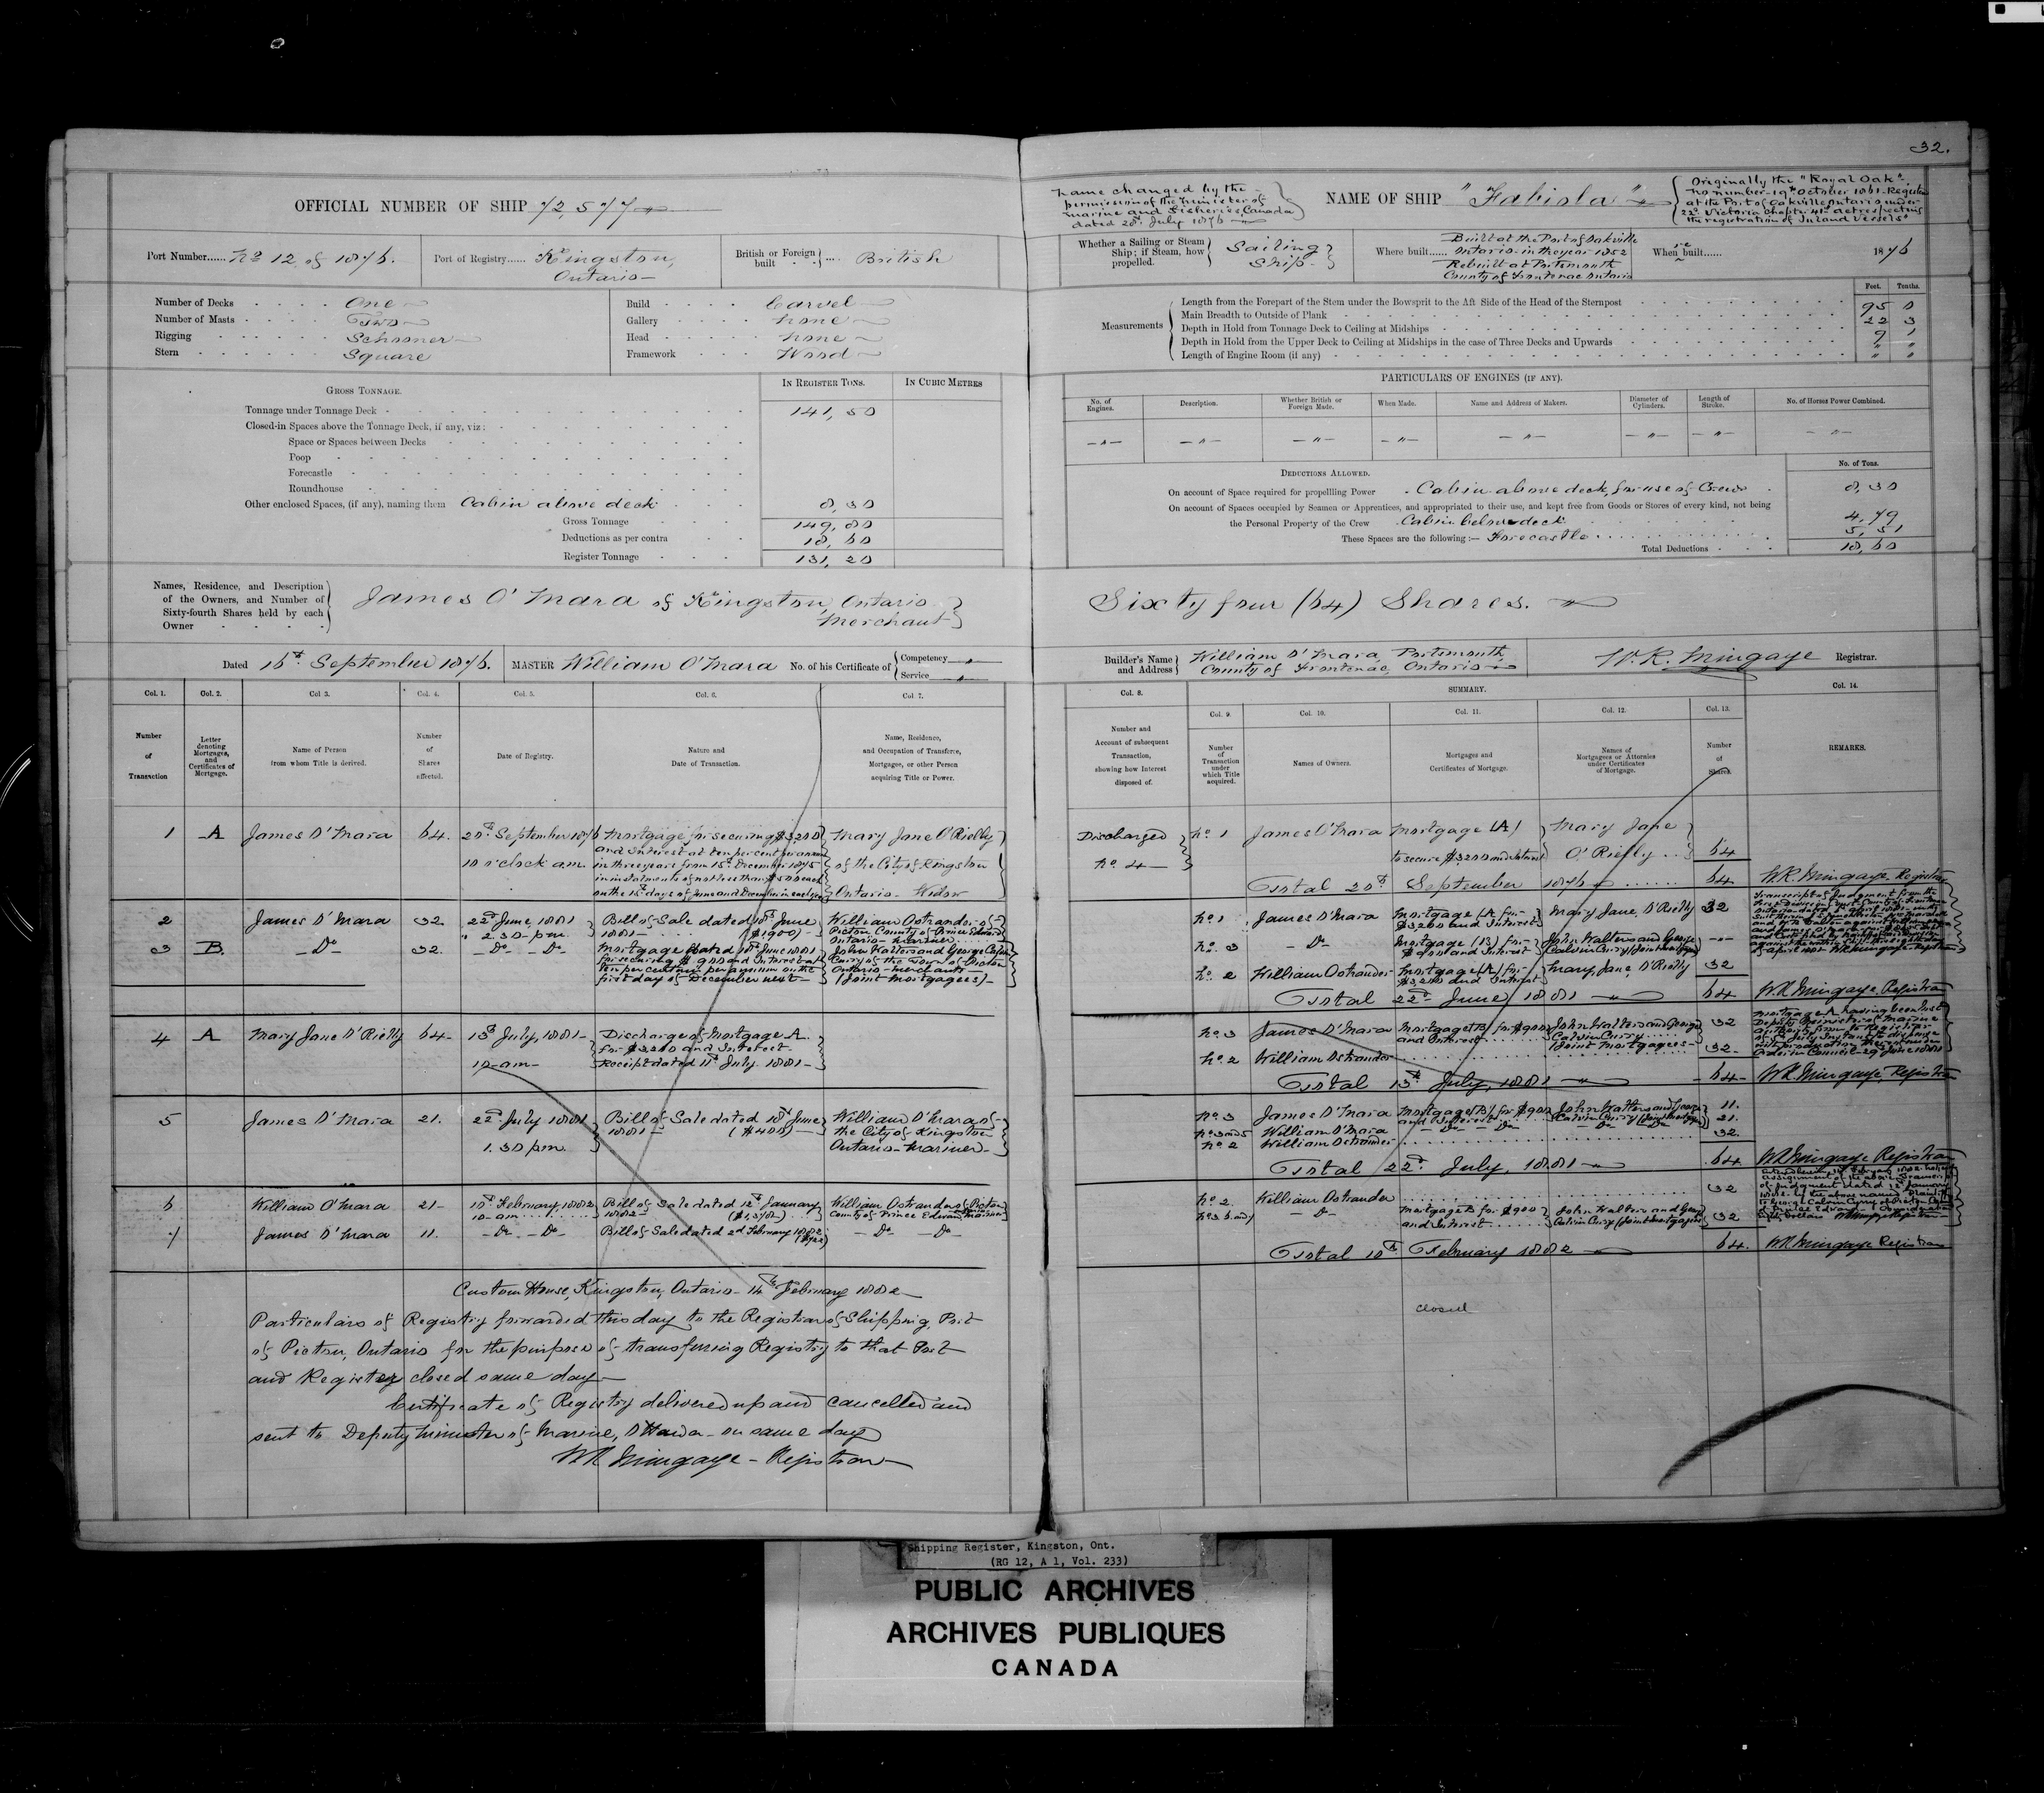 32.
OFFICIAL NUMBER OF SHIP 72,577
Name changed by the
permission of the Minister of
Marine and Fisheries Canada
dated 20th July 1876
NAME OF SHIP "Fabiola"
Originally the "Royal Oak"
no number - 19th October 1861 - Registered
at the Port of Oakville Ontario under
22d Victoria Chapter 41 act respecting
the registration of Inland Vessels
Port Number...... No 12 of 1876.
Port of Registry...... Kingston,
Ontario
British or Foreign built British
Whether a Sailing or Steam Ship; if Steam, how propelled. Sailing Ship
Where built...... Built at the Port of Oakville
Ontario in the year 1852
Rebuilt at Portsmouth
County of Frontenac Ontario
When re built...... 1876
Number of Decks One
Number of Masts Two
Rigging Schooner
Stern Square
Build Carvel
Gallery None
Head None
Framework Wood
Measurements
Feet. Tenths.
Length from the Forepart of the Stem under the Bowsprit to the Aft Side of the Head of the Sternpost 95 0
Main Breadth to Outside of Plank 22 3
Depth in Hold from Tonnage Deck to Ceiling at Midships 9 1
Depth in Hold from the Upper Deck to Ceiling at Midships in the case of Three Decks and Upwards " "
Length of Engine Room (if any) " "
GROSS TONNAGE.
IN REGISTER TONS. IN CUBIC METRES
Tonnage under Tonnage Deck 141,50
Closed-in Spaces above the Tonnage Deck, if any, viz:
Space or Spaces between Decks
Poop
Forecastle
Roundhouse
Other enclosed Spaces, (if any), naming them Cabin above deck 8,30
Gross Tonnage 149,80
Deductions as per contra 18,60
Register Tonnage 131,20
PARTICULARS OF ENGINES (IF ANY).
No. of Engines. Description. Whether British or Foreign Made. When Made. Name and Address of Makers. Diameter of Cylinders. Length of Stroke. No. of Horses Power Combined.
— " — — " — — " — — " — — " — — " — — " — — " —
DEDUCTIONS ALLOWED.
No. of Tons.
On account of Space required for propellling Power Cabin above deck, for use of Crew 8,30
On account of Spaces occupied by Seamen or Apprentices, and appropriated to their use, and kept free from Goods or Stores of every kind, not being
the Personal Property of the Crew Cabin below deck 4,79
These Spaces are the following:— Forecastle 5,51
Total Deductions 18,60
Names, Residence, and Description
of the Owners, and Number of
Sixty-fourth Shares held by each
Owner
James O'Mara of Kingston, Ontario
Merchant
Sixty four (64) Shares.
Dated 16th September 1876.
MASTER William O'Mara No. of his Certificate of Competency Service
Builder's Name and Address William O'Mara, Portsmouth,
County of Frontenac, Ontario
W. R. Mingaye Registrar.
Col. 1. Col. 2. Col. 3. Col. 4. Col. 5. Col. 6. Col. 7.
Number of Transaction
Letter denoting Mortgages, and Certificates of Mortgage.
Name of Person from whom Title is derived.
Number of Shares affected.
Date of Registry.
Nature and Date of Transaction.
Name, Residence, and Occupation of Transferee, Mortgagee, or other Person acquiring Title or Power.
Col. 8. SUMMARY. Col. 14.
Col. 9. Col. 10. Col. 11. Col. 12. Col. 13.
Number and Account of subsequent Transaction, showing how Interest disposed of.
Number of Transaction under which Title acquired.
Names of Owners.
Mortgages and Certificates of Mortgage.
Names of Mortgagees or Attornies under Certificates of Mortgage.
Number of Shares.
REMARKS.
1 A James O'Mara 64. 20th September 1876
10 o'clock am.
Mortgage for securing $3200
and Interest at ten per cent per annum
in three years from 15th December 1875
in instalments of not less than $500 each
on the 15th days of June and December in each year
Mary Jane O'Rielly
of the City of Kingston
Ontario - Widow
Discharged
No. 4
No. 1 James O'Mara Mortgage (A)
to secure $3200 and Interest
Mary Jane
O'Rielly 64
Total 20th September 1876 64 W R Mingaye, Registrar
2 James O'Mara 32 22d June, 1881
2.30 pm.
Bill of Sale dated 18th June
1881 ($1900)
William Ostrander of
Picton County of Prince Edward
Ontario - Mariner
3 B. Do 32. Do Do
Mortgage dated 18th June 1881
for securing $900 and Interest at
ten per centum per annum on the
first day of December next
John Walters and George Calvin
Curry of the Town of Picton
Ontario - Merchants
(Joint Mortgagees)
No. 1 James O'Mara Mortgage (A) for
$3200 and Interest Mary Jane, O'Rielly 32
No. 3 Do Mortgage (B) for
$900 and Interest John Walters and George
Calvin Curry (Joint Mortgagees)
No. 2 William Ostrander Mortgage (A) for
$3200 and Interest Mary Jane, O'Rielly 32
Total 22d June, 1881 64 W. R Mingaye, Registrar
4 A Mary Jane O'Rielly 64 13th July, 1881
10 am
Discharge of Mortgage A.
for $3200 and Interest
Receipt dated 11th July. 1881
No. 3 James O'Mara Mortgage (B) for $900
and Interest John Walters and George
Calvin Curry
(Joint Mortgagees) 32
No. 2 William Ostrander 32
Total 13th July, 1881 64 W R Mingaye, Registrar
5 James O'Mara 21. 22d July 1881
1.30 pm.
Bill of Sale dated 18th June
1881 ($400)
William O'Mara of
the City of Kingston
Ontario - Mariner
No. 3 James O'Mara Mortgage (B) for $900
and Interest John Walters and George
Calvin Curry (Joint Mortgagees) 11.
No. 3 and 5 William O'Mara Do Do Do Do 21.
No. 2 William Ostrander 32.
Total 22d July, 1881 64 W R Mingaye Registrar
6 William O'Mara 21 10th February, 1882
10 am
Bill of Sale dated 12th January
1882
William Ostrander of Picton
County of Prince Edward Mariner
7 James O'Mara 11. Do Do Bill of Sale dated 2d February 1882 Do Do
No. 2 William Ostrander 32
Do Mortgage B for $900
and Interest John Walters and George
Calvin Curry (Joint Mortgagees) 32
Total 10th February 1882 64. W R Mingaye Registrar
Custom House, Kingston, Ontario - 14th February 1882
Particulars of Registry forwarded this day to the Registrar of Shipping, Port
of Picton, Ontario for the purpose of transferring Registry to that Port
and Registry closed same day
Certificate of Registry delivered up and cancelled and
sent to Deputy Minister of Marine, Ottawa on same day
W R Mingaye - Registrar
closed
Shipping Register, Kingston, Ont.
(RG 12, A 1, Vol. 233)
PUBLIC ARCHIVES
ARCHIVES PUBLIQUES
CANADA